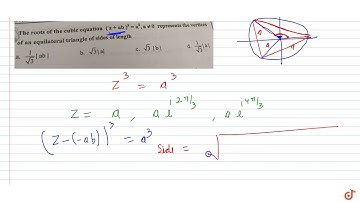 The roots of the cubic equation (z + ab)³ = a³, a ≠ 0 represents the vertices
of an equilateral triangle of sides of length
a. 1/√3 |ab| b. √3 |a| c. √3 |b| a. 1/√3 |a|
z³ = a³
z = a, a e^(i2π/3), a e^(i4π/3)
(z-(-ab))³ = a³
Side = √